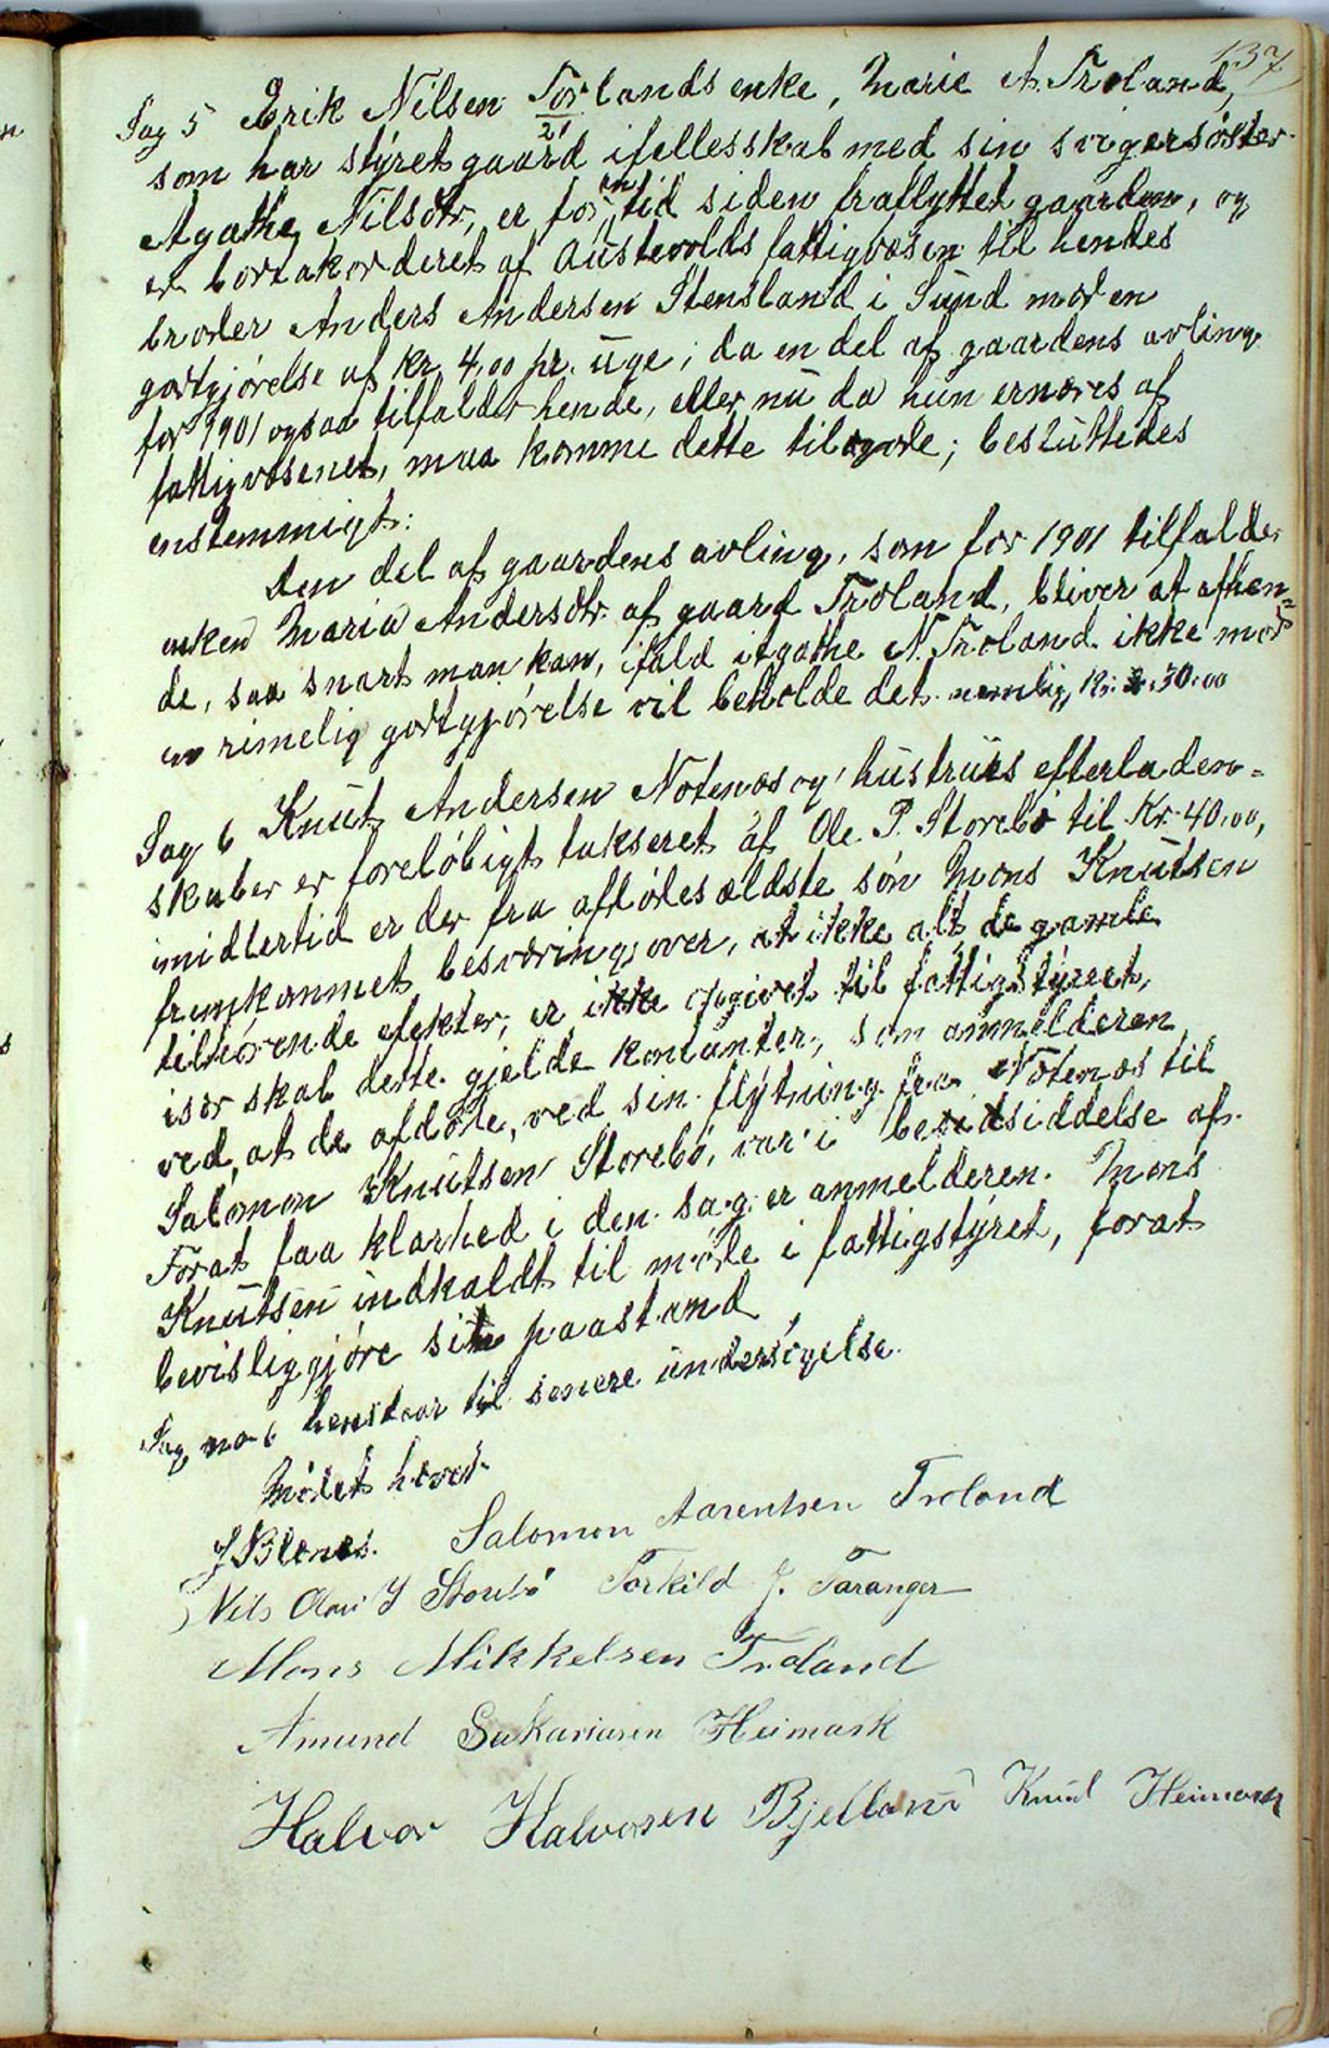 137
Sag 5 Erik Nilsen Torlands enke, Marie A. Troland,
21
som har styret gaard ifellesskab med sin svigersøster
Agathe Nilsdtr, er for en tid siden fraflyttet gaarden, og
er bortakorderet af Austevolds fattigvæsen til hendes
broder Anders Andersen Stensland i Sund mod en
godtgjørelse af kr. 4,00 pr. uge; da en del af gaardens avling
for 1901 ogsaa tilfalder hende, eller nu da hun ernæres af
fattigvæsenet, maa komme dette tilgode; besluttedes
enstemmigt:
Den del af gaardens avling, som for 1901 tilfalder
enken Maria Andersdtr. af gaard Troland, bliver at afhen-
de, saa snart man kan, ifald Agathe N. Troland ikke mod
en rimelig godtgjørelse vil beholde det. nemlig Kr. 30.00
Sag 6 Knut Andersen Notenæs og hustrues efterladen-
skaber er foreløbigt takseret af Ole P. Storebø til Kr. 40,00,
imidlertid er der fra afdødes ældste søn Mons Knutsen
fremkommet besværing over, at ikke alt de gamle
tilhørende efekter, er ikke opgivet til fattigstyret,
især skal dette gjelde kontanter, som anmelderen
ved, at de afdøde, ved sin flytning fra Notenæs til
Salomon Knutsen Storebø, var i besidsiddelse af.
Forat faa klarhed i den sag er anmelderen Mons
Knutsen indkaldt til møde i fattigstyret, forat
bevisliggjøre sin paastand.
Sag no 6 henstaar til senere undersøgelse.
Mødet hævet.
J Blenes. Salomon Aarentsen Troland
Nils Olai J Storebø Torkild J. Taranger
Mons Mikkelsen Troland
Amund Sakariasen Heimark
Halvor Halvorsen Bjelland Knud Heimark